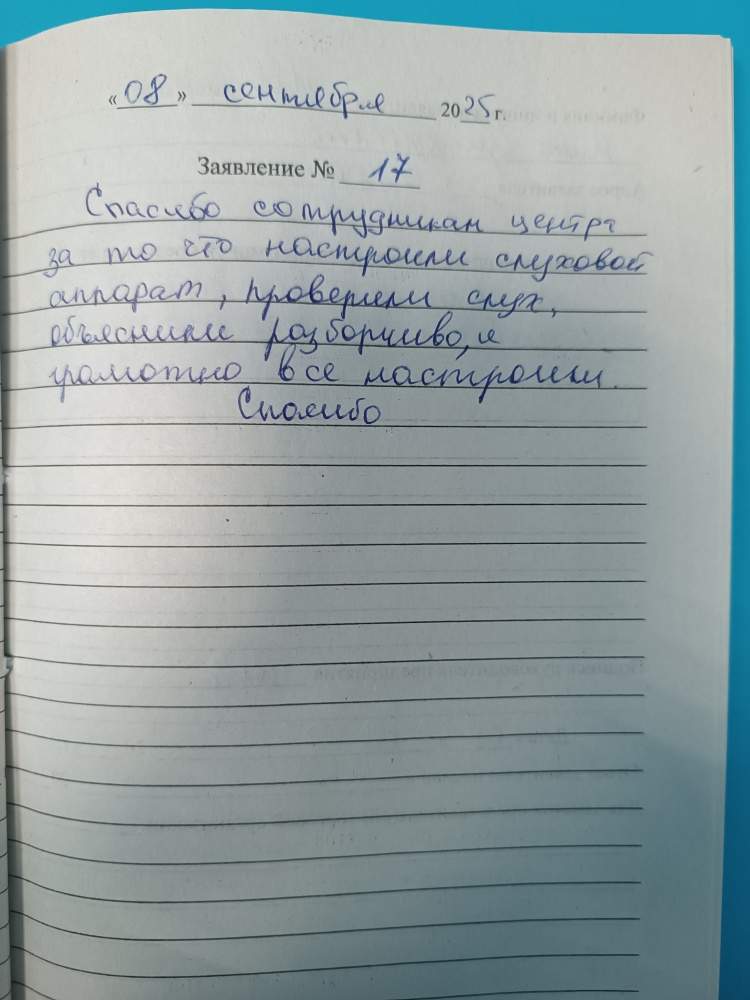 «08» сентября 2025 г.
Заявление № 17
Спасибо сотрудникам центра
за то что настроили слуховой
аппарат, проверили слух,
объяснили разборчиво, и
грамотно все настроили.
Спасибо